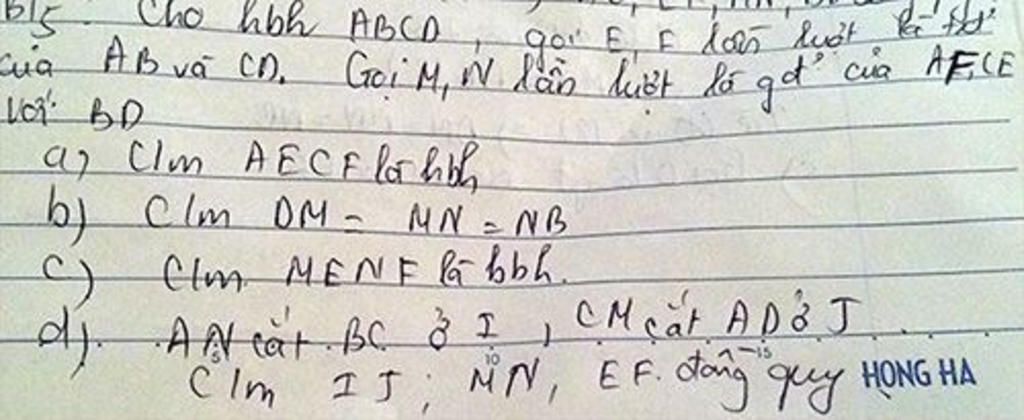 B15 Cho hbh ABCD, gọi E, F lần lượt là tđ'
của AB và CD. Gọi M, N lần lượt là gđ' của AF, CE
với BD
a) C/m AECF là hbh
b) C/m DM = MN = NB
c) C/m MENF là hbh.
d). AN cắt BC ở I, CM cắt AD ở J
C/m IJ; MN, EF. đồng quy HONG HA
5 10 15